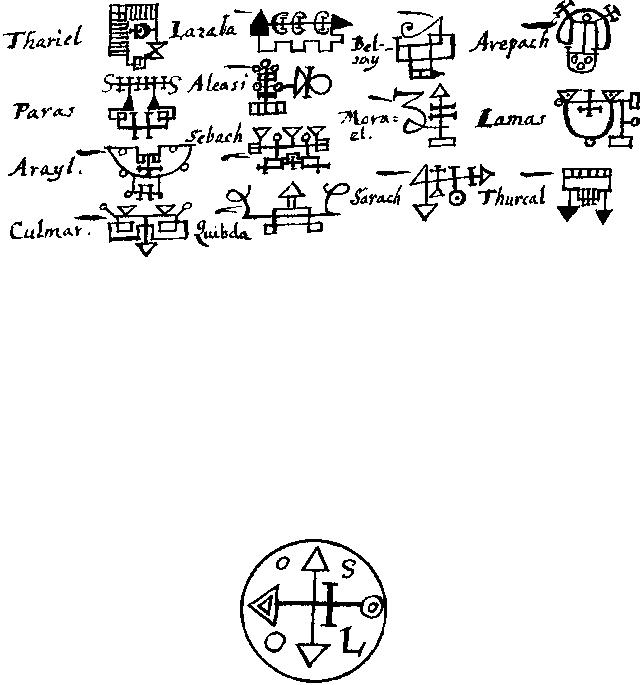 Thariel Lazaba Bel-say Arepach
Paras Aleasi Mora=el. Lamas
Arayl. Sebach Sarach Thurcal
Culmar. Quibda
S
I
L